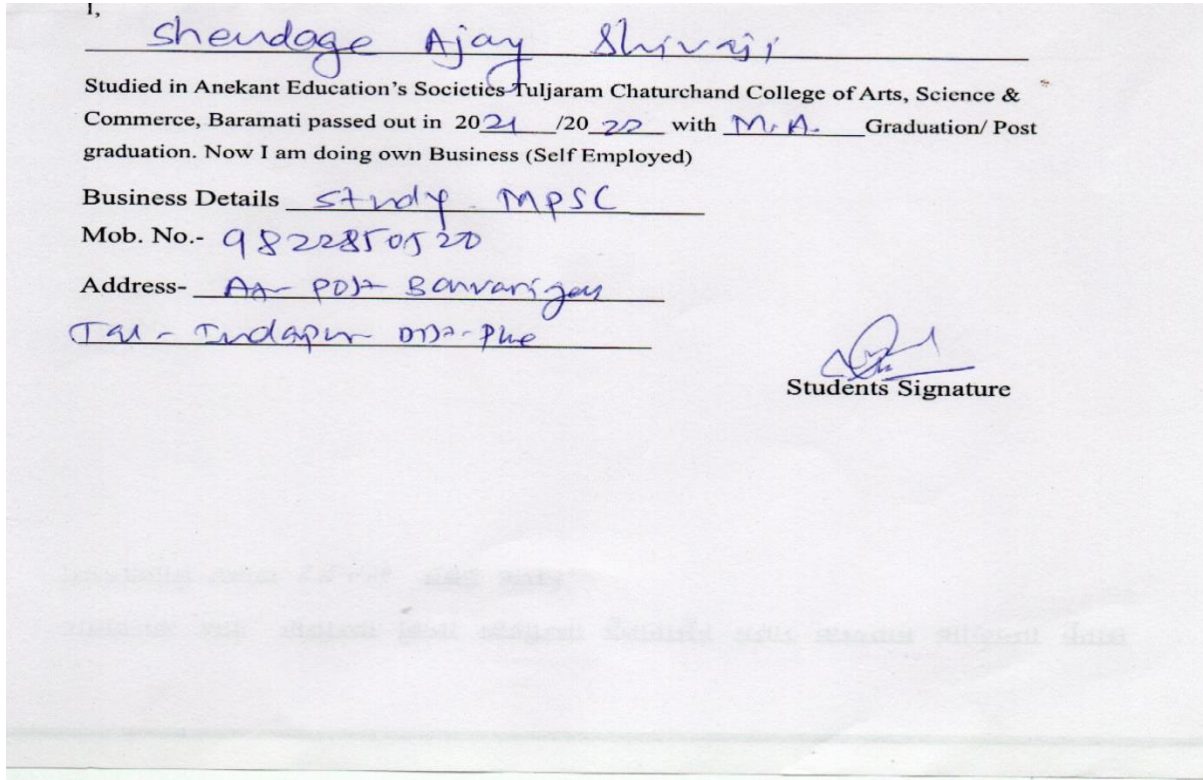 I,
Shendage Ajay Shivaji
Studied in Anekant Education's Societies Tuljaram Chaturchand College of Arts, Science &
Commerce, Baramati passed out in 2021 /20 22 with M.A. Graduation/ Post
graduation. Now I am doing own Business (Self Employed)
Business Details study MPSC
Mob. No.- 9822850520
Address- At- Post
Tal - Indapur Dist- Pune
Students Signature